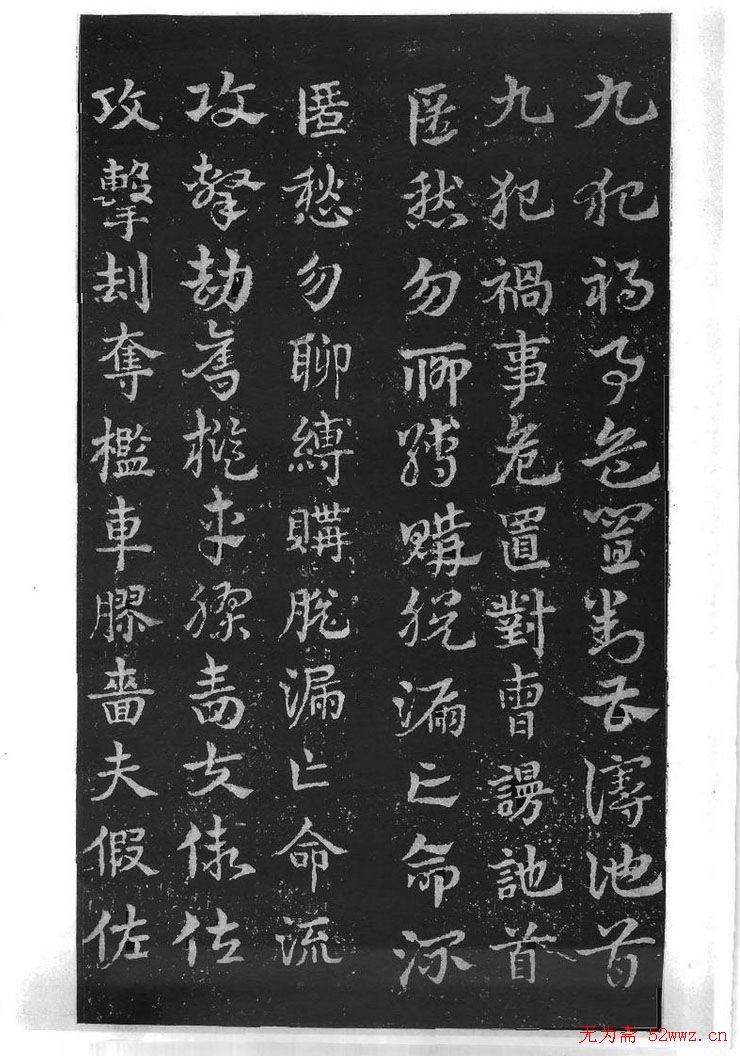 九犯禍事危置對曹謾訑首
九犯禍事危置對曹謾訑首
匿愁勿聊縛購脫漏亡命流
匿愁勿聊縛購脫漏亡命流
攻擊劫奪檻車膠嗇夫假佐
攻擊刦奪檻車膠嗇夫假佐
无为斋 52wwz.cn